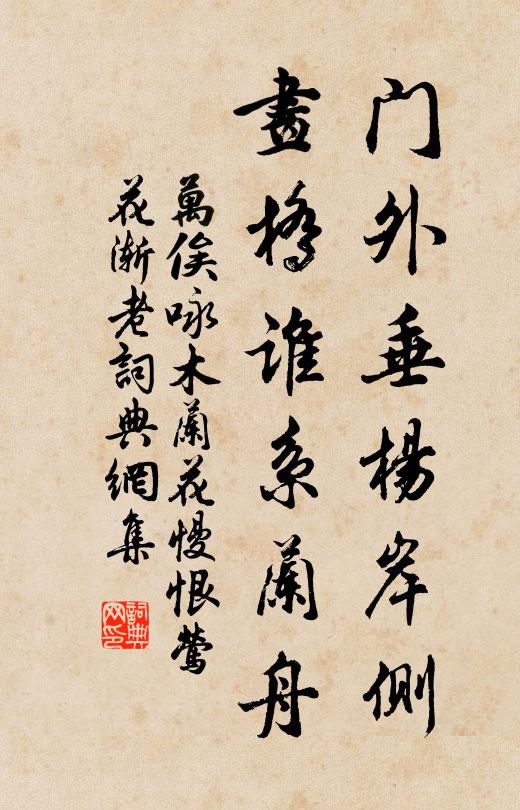 门外垂楊岸側
畫橋谁系蘭舟
萬俟咏木蘭花慢恨莺
花渐老詞典網集
詞典网印